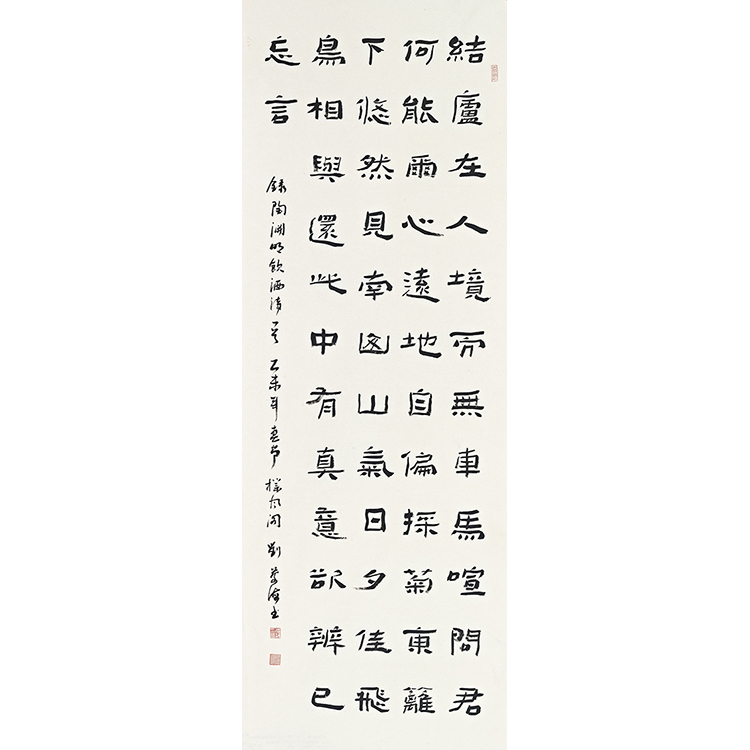 結廬在人境而無車馬喧問君
何能爾心遠地自偏採菊東籬
下悠然見南山山氣日夕佳飛
鳥相與還此中有真意欲辨已
忘言
錄陶淵明飲酒詩 乙未年春節 劉海書